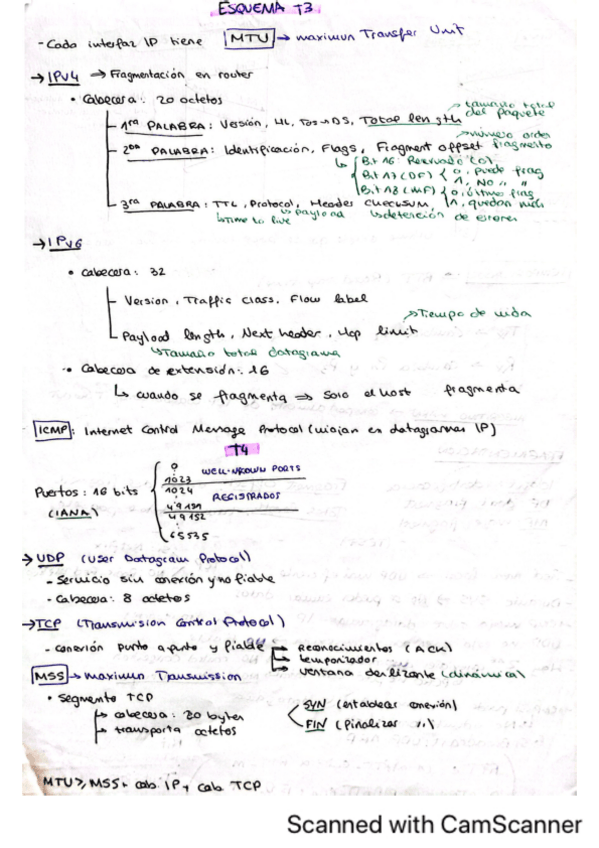 ESQUEMA T3
- Cada interfaz ID tiene MTU → maximun Transfer Unit
→ IPv4 → Fragmentación en router
• Cabecera: 20 octetos
→ tamaño total del paquete
1ra PALABRA: Versión, HL, Tos→DS, Total length
→ número orden fragmento
2da PALABRA: Identificación, Flags, Fragment offset
Bit 16: Reservado (0)
Bit 17 (DF) { 0, puede frag
1, No " "
Bit 18 (MF) { 0, último frag
1, quedan más
3ra PALABRA: TTL, Protocol, Header CHECKSUM,
↳ Time to live ↳ payload ↳ detención de errores
→ IPv6
• cabecera: 32
Version, Traffic class, Flow label
→ Tiempo de vida
Payload length, Next header, Hop limit
↳ Tamaño total datagrama
• Cabecera de extensión: 16
↳ cuando se fragmenta ⇒ solo el host fragmenta
ICMP: Internet Control Message Protocol (viajan en datagramas IP)
T4
Puertos: 16 bits
(IANA)
0
WELL-KNOWN PORTS
1023
1024
REGISTRADOS
49151
49152
65535
→ UDP (User Datagram Protocol)
- Servicio sin conexión y no fiable
- Cabecera: 8 octetos
→ TCP (Transmission Control Protocol)
- conexión punto a punto y fiable → Reconocimientos (ACK)
→ temporizador
→ ventana deslizante (dinámica)
MSS → maximun Transmission
• Segmento TCP
→ cabecera: 20 bytes
→ transporta octetos
SYN (establecer conexión)
FIN (finalizar ")
MTU ≥ MSS + cab IP + cab TCP
Scanned with CamScanner